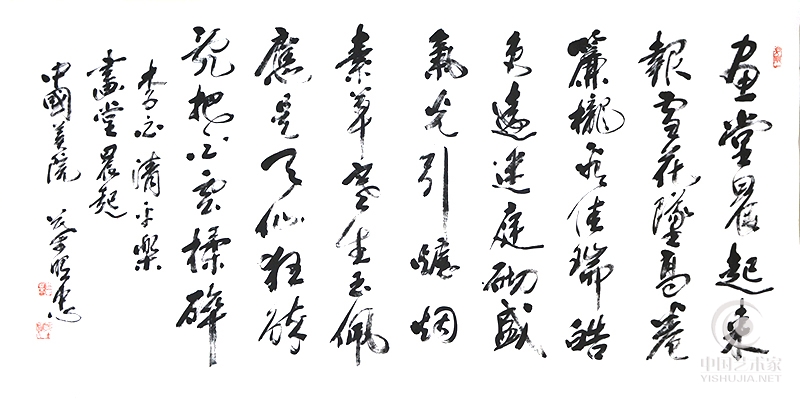 画堂晨起来
報雪花墜高卷
簾櫳看佳瑞皓
色遠迷庭砌盛
氣光引爐烟
素草寒生玉佩
應是天仙狂醉
乱把白雲揉碎
李白清平樂
畫堂晨起
中國美院
中国艺术家
YISHUJIA.NET